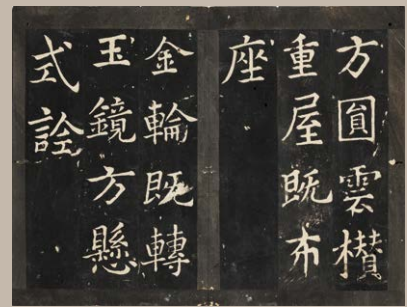 方圓雲欑
重屋既布
座
金輪既轉
玉鏡方懸
式詮